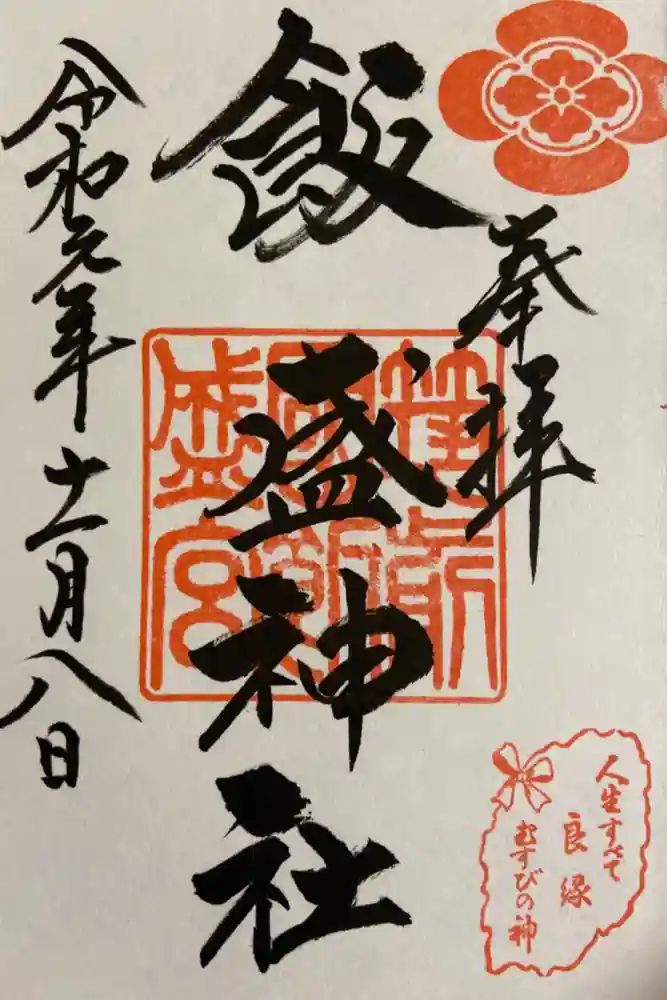 奉拝
飯盛神社
令和元年十一月八日
筑前
國飯
盛宮
人生すべて
良縁
むすびの神